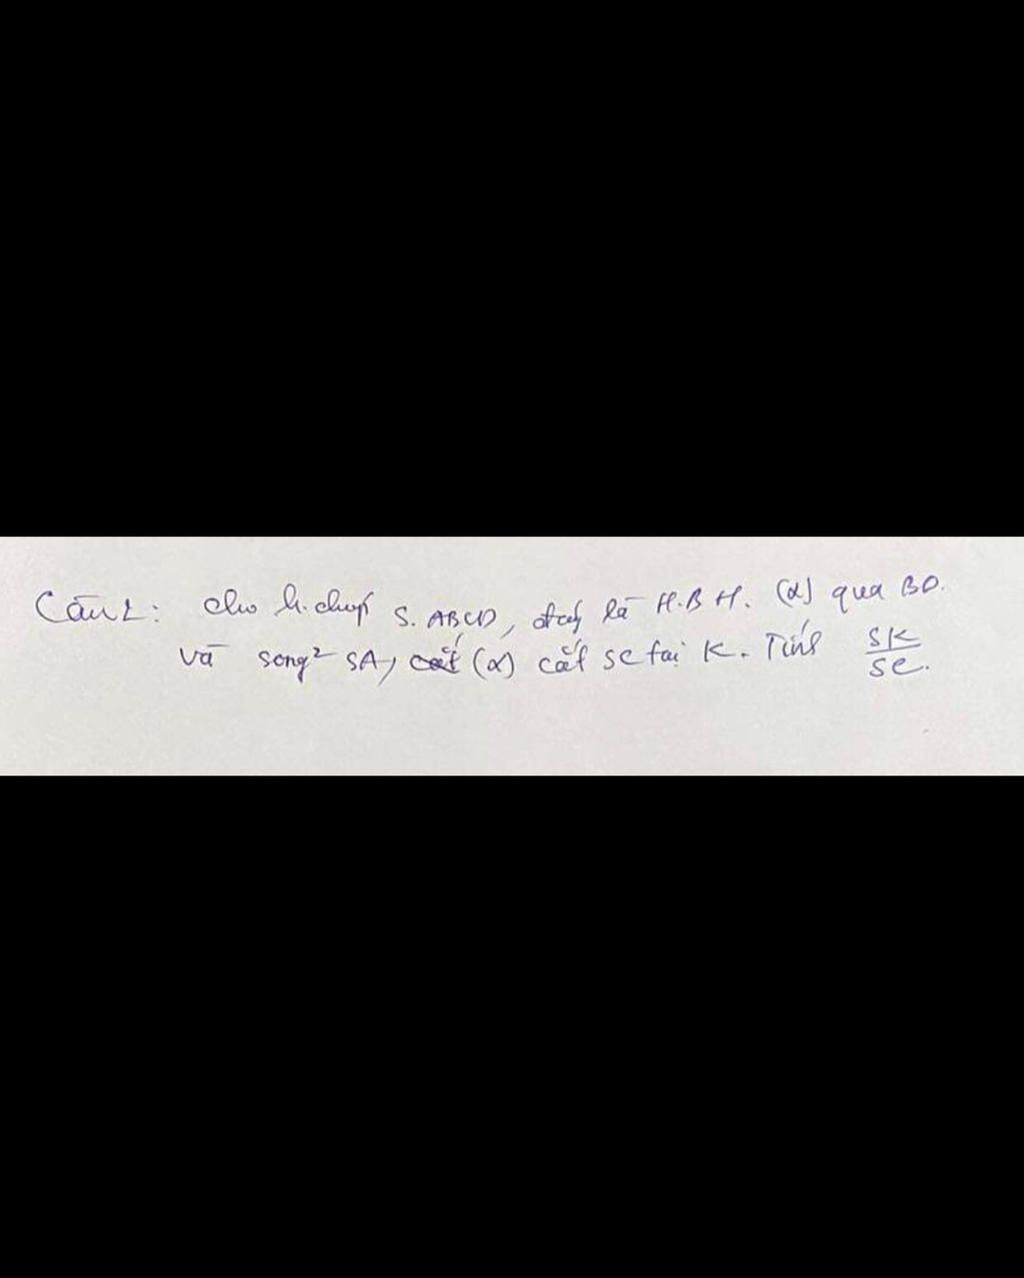 Câu 2: cho h.chóp S.ABCD, đáy là H.B H. (α) qua BD.
và song² SA, cắt (α) cắt SC tại K. Tính SK/SC.